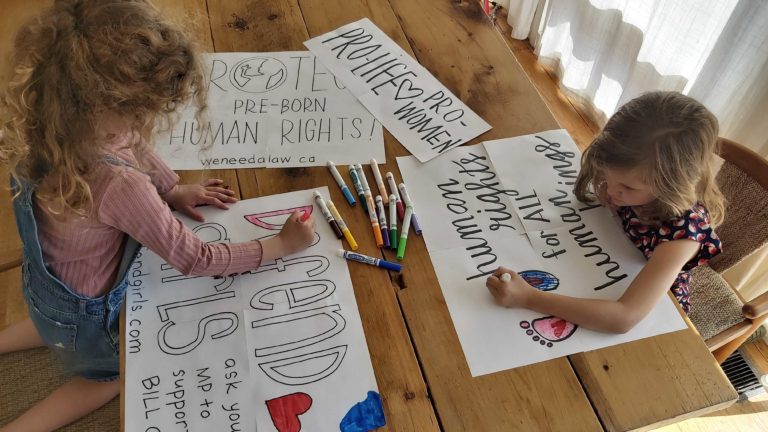 PROTEC
PRE-BORN
HUMAN RIGHTS!
weneedalaw.ca
PRO-LIFE♡PRO-
WOMEN
human
rights
for ALL
human
ings
Defend
GIRLS
ndgirls.com
ask you
MP to
suppor
BILL